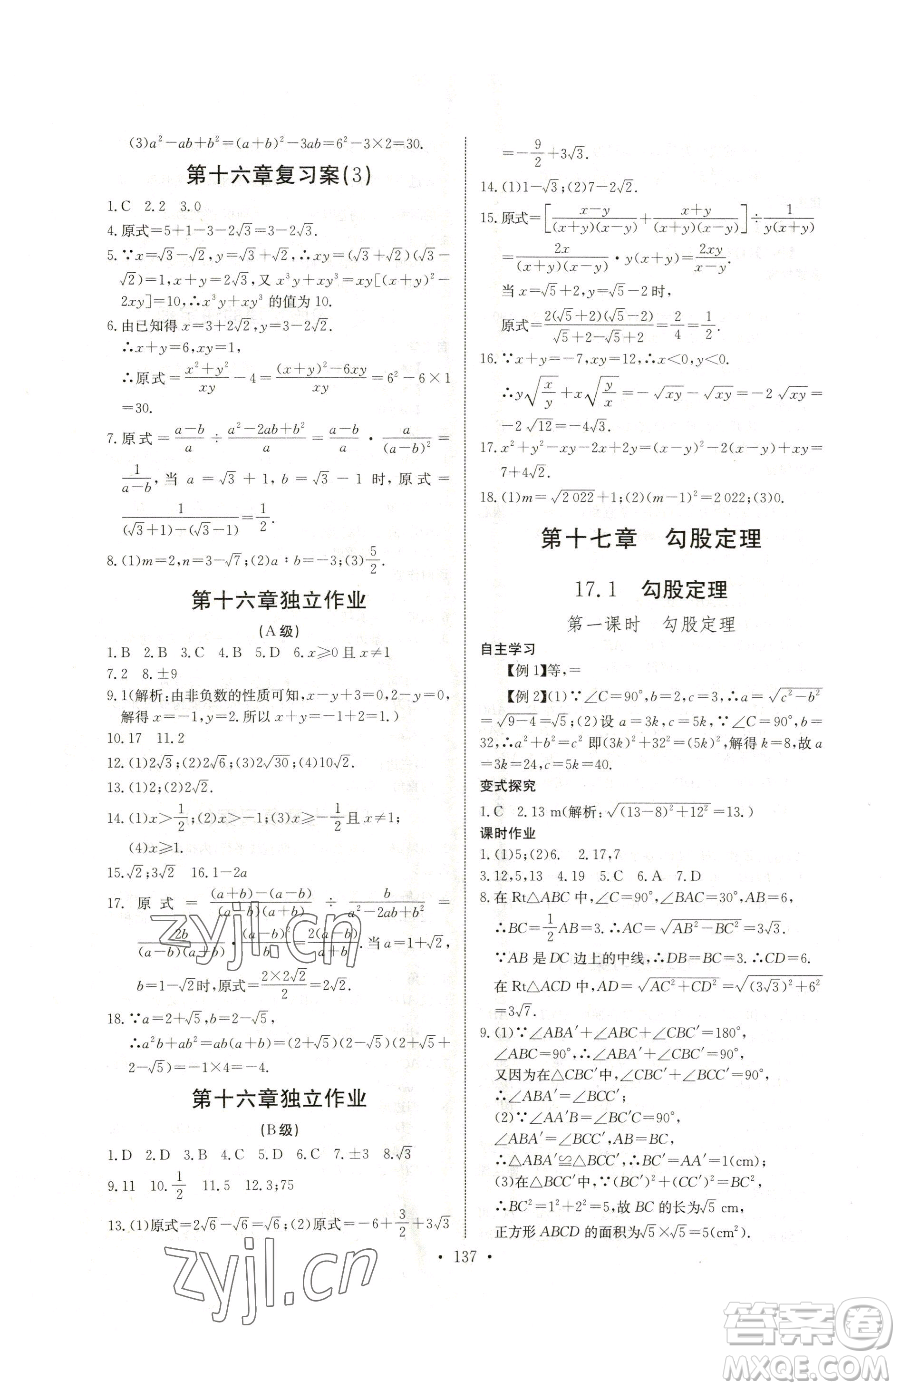 (3)a²-ab+b²=(a+b)²-3ab=6²-3×2=30.
第十六章复习案(3)
1.C 2.2 3.0
4.原式=5+1-3-2√3=3-2√3.
5.∵x=√3-√2,y=√3+√2,∴xy=(√3+√2)(√3-
√2)=1,x+y=2√3,又x³y+xy³=xy[(x+y)²-
2xy]=10,∴x³y+xy³的值为10.
6.由已知得x=3+2√2,
∴x+y=6,xy=1,
∴原式=(x²+y²)/xy-4=((x+y)²-6xy)/xy=6²-6×1
=30.
7.原式=(a-b)/a÷(a²-2ab+b²)/a=(a-b)/a·a/(a-b)²=
1/(a-b),当a=√3+1,b=√3-1时,原式=
1/((√3+1)-(√3-1))=1/2.
8.(1)m=2,n=3-√7;(2)a∶b=3;(3)5/2.
第十六章独立作业
(A级)
1.B 2.B 3.D 4.B 5.D 6.x≥0且x≠1
7.2 8.±9
9.1(解析:由非负数的性质可知,x-y+3=0,2-y=0,
解得x=-1,y=2.所以x+y=-1+2=1.)
10.17 11.2
12.(1)2√3;(2)2√6;(3)2√30;(4)10√2.
13.(1)2√3;(2)2√2.
14.(1)x>1/2;(2)x≥0且x≠1;(3)x>-1/2且x≠1;
(4)x≥1.
15.√2;3√2 16.1-2a
17.原式=((a+b)-(a-b))/((a-b)(a+b))÷b/(a²-2ab+b²)=
2b/((a-b)(a+b))·(a-b)²/b=2(a-b)/(a+b).当a=1+√2,
b=1-√2时,原式=(2×2√2)/2=2√2.
18.∵a=2+√5,b=2-√5,
∴a²b+ab²=ab(a+b)=(2+√5)(2-√5)(2+√5
+2-√5)=-1×4=-4.
第十六章独立作业
(B级)
1.D 2.D 3.D 4.C 5.C 6.C 7.±3 8.√3
9.11 10.1/2 11.5 12.3;75
13.(1)原式=2√6-√6=√6;(2)原式=-6+3/2+3√3
=-9/2+3√3.
14.(1)1-√3;(2)7-2√2.
15.原式=[(x-y)/((x+y)(x-y))+(x+y)/((x+y)(x-y))]÷1/(y(x+y))
=2x/((x+y)(x-y))·y(x+y)=2xy/(x-y).
当x=√5+2,y=√5-2时,
原式=2(√5+2)(√5-2)/(√5+2-√5+2)=2/4=1/2.
16.∵x+y=-7,xy=12,∴x<0,y<0.
∴y√(x/y)+x√(y/x)=-√xy-√xy=-2√xy=
-2√12=-4√3.
17.x²+y²-xy-2x+2y=(x-y)²-2(x-y)+xy=
7+4√2.
18.(1)m=√2022+1;(2)(m-1)²=2022;(3)0.
第十七章 勾股定理
17.1 勾股定理
第一课时 勾股定理
自主学习
【例1】等,=
【例2】(1)∵∠C=90°,b=2,c=3,∴a=√(c²-b²)
=√(9-4)=√5;(2)设a=3k,c=5k,∵∠C=90°,b=
32,∴a²+b²=c²即(3k)²+32²=(5k)²,解得k=8,故a
=3k=24,c=5k=40.
变式探究
1.C 2.13 m(解析:√((13-8)²+12²)=13.)
课时作业
1.(1)5;(2)6. 2.17,7
3.12,5,13 4.19 5.C 6.A 7.D
8.在Rt△ABC中,∠C=90°,∠BAC=30°,AB=6,
∴BC=1/2AB=3.∴AC=√(AB²-BC²)=3√3.
∵AB是DC边上的中线,∴DB=BC=3.∴CD=6.
在Rt△ACD中,AD=√(AC²+CD²)=√((3√3)²+6²)=
3√7.
9.(1)∵∠ABA′+∠ABC+∠CBC′=180°,
∠ABC=90°,∴∠ABA′+∠CBC′=90°.
又因为在Rt△CBC′中,∠BCC′+∠CBC′=90°,
∴∠ABA′=∠BCC′.
(2)在△ABA′和△BCC′中,∵AB=BC,∠AA′B=
∠BC′C=90°,
∠ABA′=∠BCC′,
∴△ABA′≌△BCC′,∴BC′=AA′=1(cm);
(3)在△BCC′中,∵BC′=1,CC′=2,
∴BC²=1²+2²=5,故BC的长为√5cm,
正方形ABCD的面积为√5×√5=5(cm²).
• 137 •
zyjl.cn
zyjl.cn
答案圈
MXQE.COM